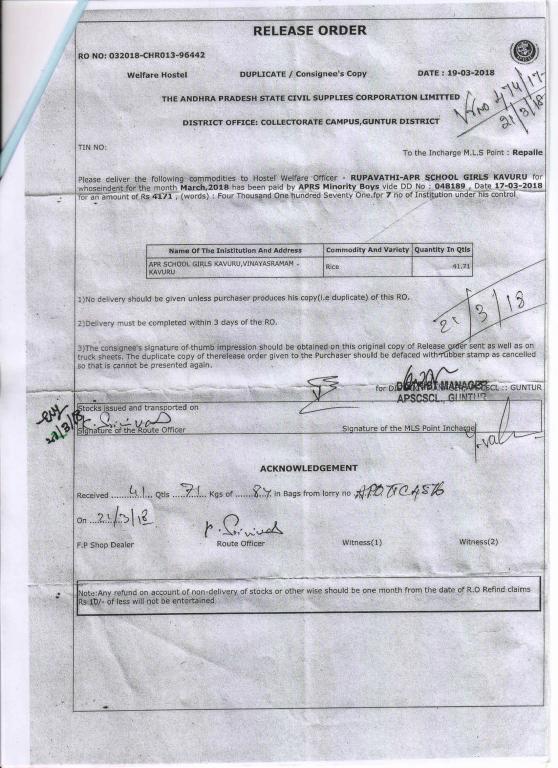 RELEASE ORDER
RO NO: 032018-CHR013-96442
Welfare Hostel DUPLICATE / Consignee's Copy DATE : 19-03-2018
THE ANDHRA PRADESH STATE CIVIL SUPPLIES CORPORATION LIMITTED
474/17-
21/3/18
DISTRICT OFFICE: COLLECTORATE CAMPUS,GUNTUR DISTRICT
TIN NO:
To the Incharge M.L.S Point : Repalle
Please deliver the following commodities to Hostel Welfare Officer - RUPAVATHI-APR SCHOOL GIRLS KAVURU for
whoseindent for the month March,2018 has been paid by APRS Minority Boys vide DD No : 048189 , Date 17-03-2018
for an amount of Rs 4171 , (words) : Four Thousand One hundred Seventy One.for 7 no of Institution under his control
Name Of The Inistitution And Address Commodity And Variety Quantity In Qtls
APR SCHOOL GIRLS KAVURU,VINAYASRAMAM - KAVURU Rice 41.71
1)No delivery should be given unless purchaser produces his copy(i.e duplicate) of this RO.
21/3/18
2)Delivery must be completed within 3 days of the RO.
3)The consignee's signature of thumb impression should be obtained on this original copy of Release order sent as well as on
truck sheets. The duplicate copy of therelease order given to the Purchaser should be defaced with rubber stamp as cancelled
so that is cannot be presented again.
for DISTRICT MANAGER :: GUNTUR
APSCSCL, GUNTUR
Stocks issued and transported on
21/3/18
Signature of the Route Officer Signature of the MLS Point Incharge
ACKNOWLEDGEMENT
Received 41 Qtls 71 Kgs of 84 in Bags from lorry no
On 21/3/18
F.P Shop Dealer Route Officer Witness(1) Witness(2)
Note:Any refund on account of non-delivery of stocks or other wise should be one month from the date of R.O Refind claims
Rs 10/- of less will not be entertained